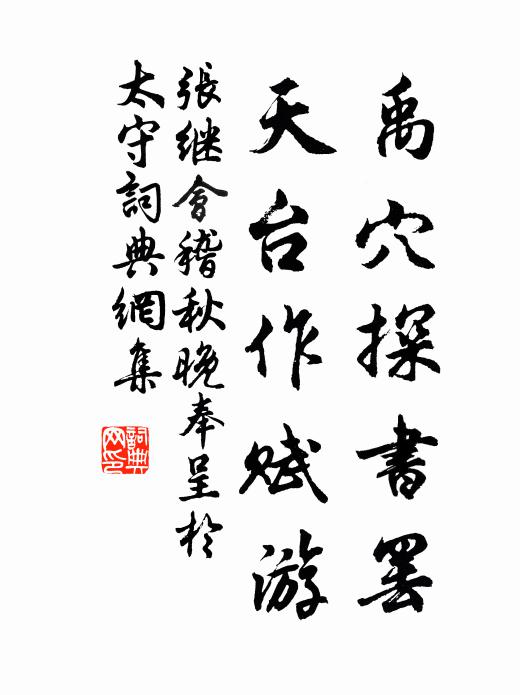 禹穴探書罢
天台作赋游
張继會稽秋晚奉呈於
太守詞典網集
詞典
网印